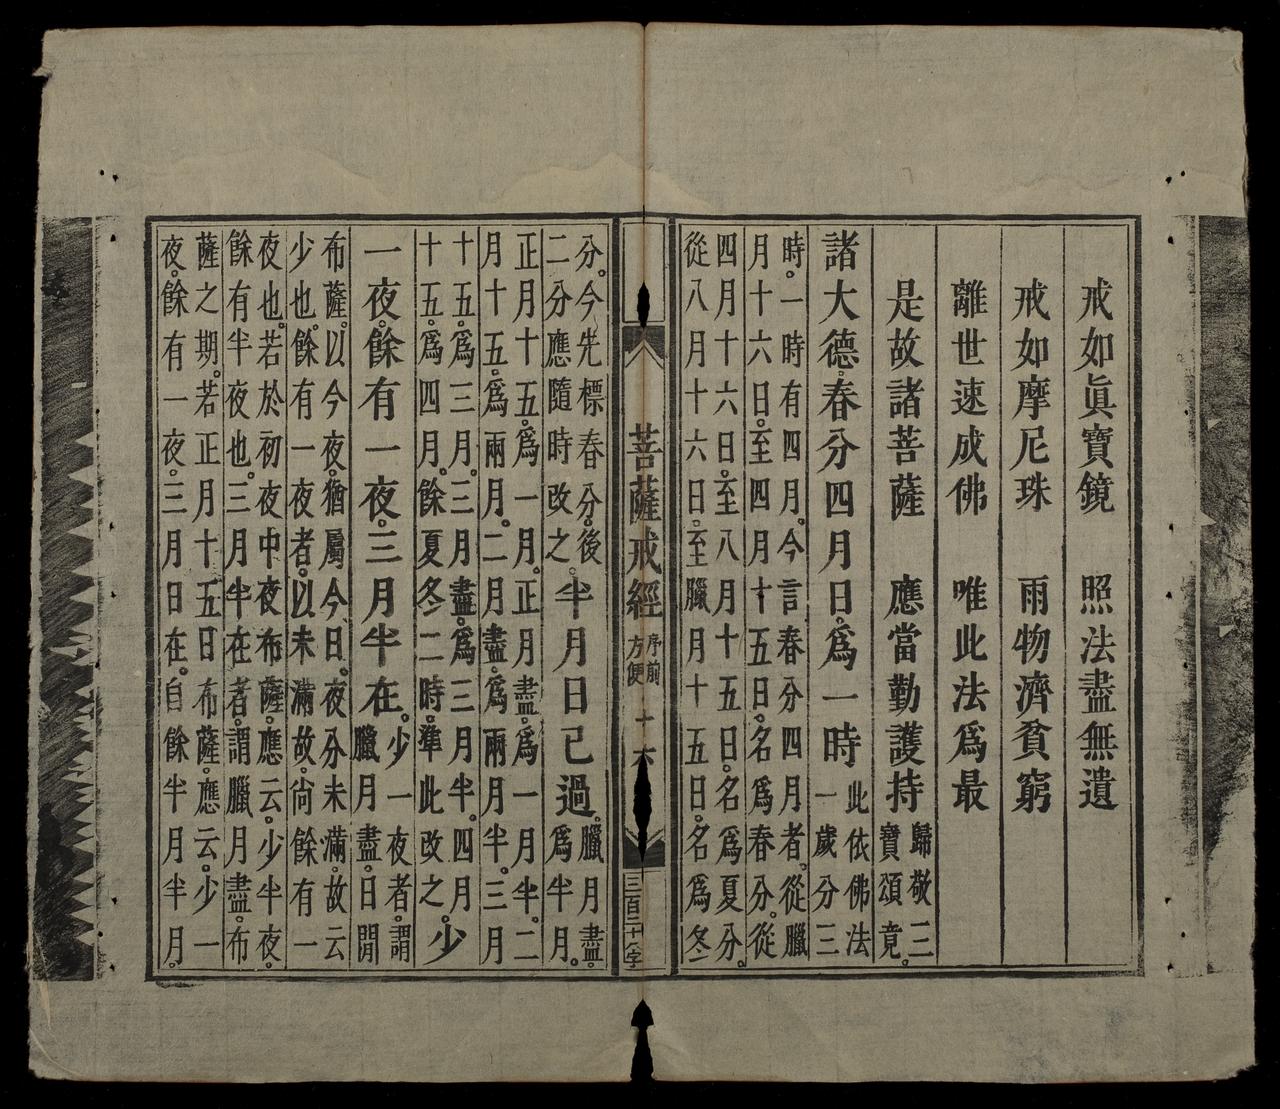 戒如眞寶鏡　照法盡無遺
戒如摩尼珠　雨物濟貧窮
離世速成佛　唯此法爲最
是故諸菩薩　應當勤護持
歸敬三
寶頌竟。
諸大德。春分四月日。爲一時
此依佛法
一歲分三
時。一時有四月。今言春分四月者。從臘
月十六日。至四月十五日。名爲春分。從
四月十六日。至八月十五日。名爲夏分。
從八月十六日。至臘月十五日。名爲冬
菩薩戒經
序前
方便
十六
三百二十八字
分。今先標春分。後
二分應隨時改之。
半月日已過。
臘月盡。
爲半月。
正月十五。爲一月。正月盡。爲一月半。二
月十五。爲兩月。二月盡。爲兩月半。三月
十五。爲三月。三月盡。爲三月半。四月
十五。爲四月。餘夏冬二時。準此改之。
少
一夜。餘有一夜。三月半在。
少一夜者。謂
臘月盡。日間
布薩。以今夜。猶屬今日。夜分未滿。故云
少也。餘有一夜者。以未滿故。尙餘有一
夜也。若於初夜中夜布薩。應云。少半夜。
餘有半夜也。三月半在者。謂臘月盡。布
薩之期。若正月十五日布薩。應云。少一
夜。餘有一夜。三月日在。自餘半月半月。